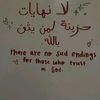 لا نهايات
حزينة لمن يثق
بالله
There are no sad endings
for those who trust
in God.